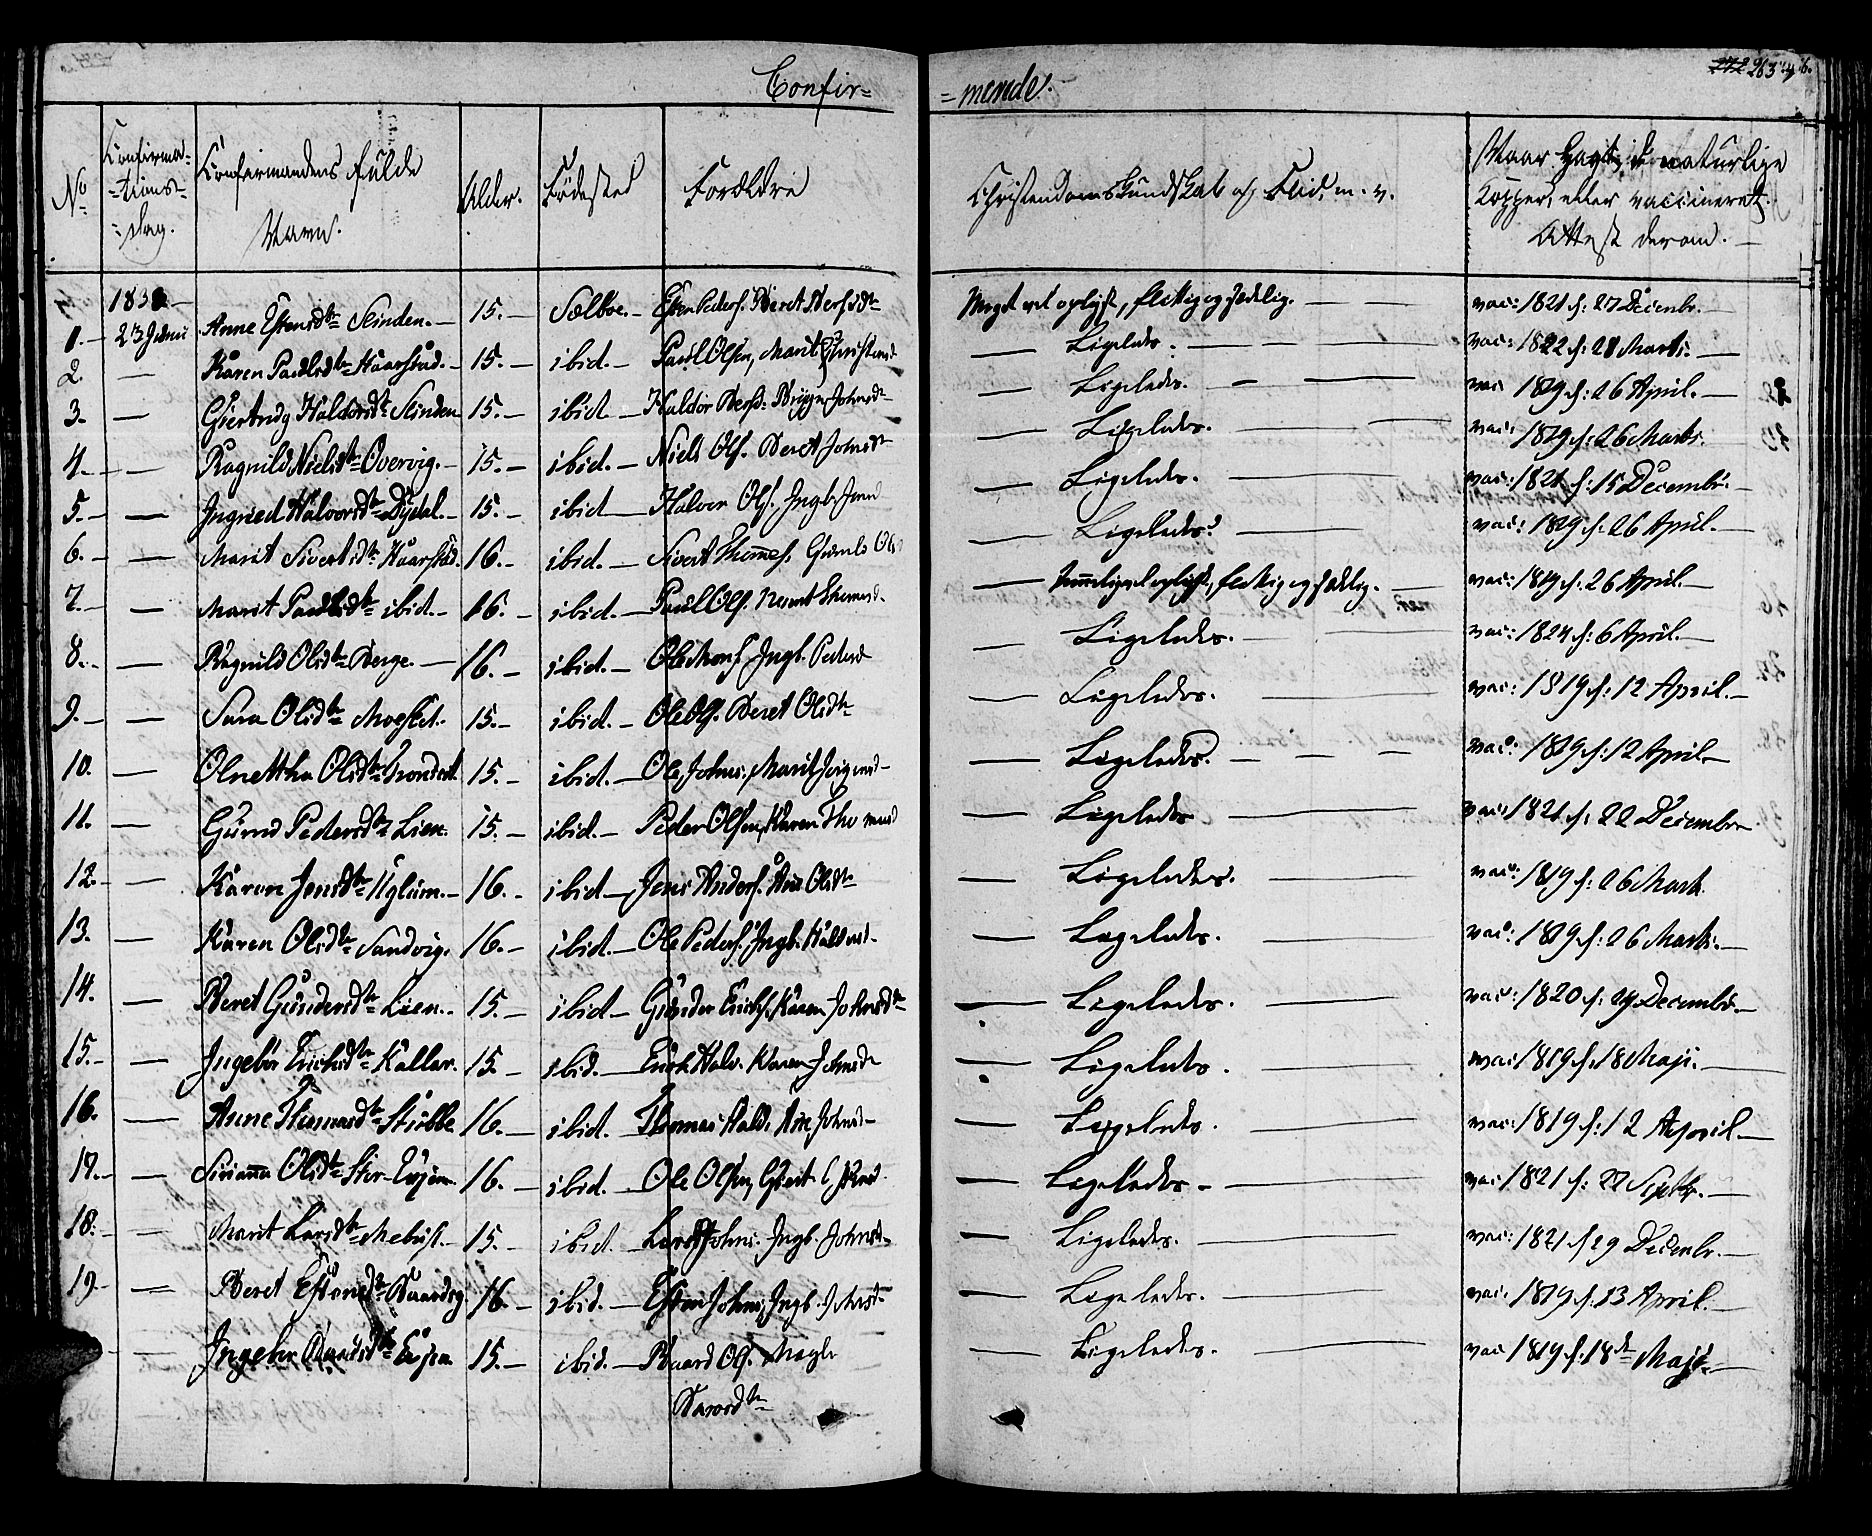 Confir=
=mende.
No
Confirma-
-tions-
-dag.
Confirmandens fulde
Navn.
Alder.
Fødested
Forældre
Christendoms Kundskab og Flid, m. v.
Naar havt de naturlige
Kopper, eller vaccineret.
Attest derom.
183
1. 23 Junii Anne Estensdtr Slinden. 15. Sælboe. Esten Peders. Beret Iversdtr Meget vel oplyst, flittig og sædelig. vac: 1821 d: 27 Decembr.
2. Karen Paulsdtr Haarstad. 15. ibid. Paul Olsen, Marit Ligeledes. vac: 1822 d: 28 Marts.
3. Giertrug Haldorsdtr Slinden 15. ibid Haldor Johnsdtr Ligeledes. vac 1819 d: 26 April.
4. Ragnild Nielsdtr Overvig. 15. ibid. Niels Ols. Beret Johnsdtr Ligeledes. vac: 1819 d: 26 Marts.
5. Ingried Halvorsdtr Dydal. 15. ibid Halvor Ols. Ingb. Ligeledes. vac: 1821 d: 15 Decembr.
6. Marit Sivertsdtr Haarstad. 16. ibid. Sivert Thomes. Ligeledes. vac: 1819 d: 26 April.
7. Marit Paulsdtr ibid. 16. ibid. Paul Ols. Thomesd. Temmeligvel oplyst, flittig og sædelig. vac: 1819 d: 26 April.
8. Ragnild Olsdtr Berge. 16. ibid. Ole Ingb. Pedersd Ligeledes. vac: 1824 d: 6 April.
9. Sara Olsdtr Moeslet. 15. ibid. Ole Ols. Beret Olsdtr Ligeledes. vac: 1819 d: 12 April.
10. Olnettha Olsdtr 15. ibid. Ole Johns. Marit Ligeledes. vac: 1819 d: 12 April.
11. Guroe Pedersdtr Lien. 15. ibid. Peder Olsen, Karen Thomasd Ligeledes vac: 1821 d: 22 Decembr
12. Karen Jensdtr Uglum. 16. ibid Jens Anders. Ane Olsdtr Ligeledes. vac: 1819 d: 26 Marts.
13. Karen Olsdtr Sandvig. 16. ibid. Ole Peders. Ingb. Ligeledes. vac: 1819 d: 26 Marts.
14. Beret Gundersdtr Lien. 15. ibid Gunder Erichs. Karen Johnsdtr Ligeledes. vac: 1820 d: 29 Decembr.
15. Ingebor Erichsdtr Kallar. 15. ibid. Erich Halv. Karen Johnsdtr Ligeledes. vac 1819 d: 18 Maji.
16. Anne Thomasdtr Stubbe 16. ibid. Thomas Hald. Ane Johnsd Ligeledes. vac: 1819 d: 12 April.
17. Sirianna Olsdtr Stor-Evjen. 16. ibid. Ole Olsen, Ligeledes vac: 1821 d: 27 Septbr.
18. Marit Larsdtr Mebust. 15. ibid. Lars Johns. Ingb. Johnsd. Ligeledes. vac: 1821 d 29 Decembr.
19. Beret Estensdtr 16. ibid. Esten Johns, Ingb. Johnsd. Ligeledes. vac: 1819 d: 13 April.
Ingebor Baardsdtr Evjen. 15. ibid. Baard Ols. Magli Ligeledes. vac 1819 d: 18de Maji.